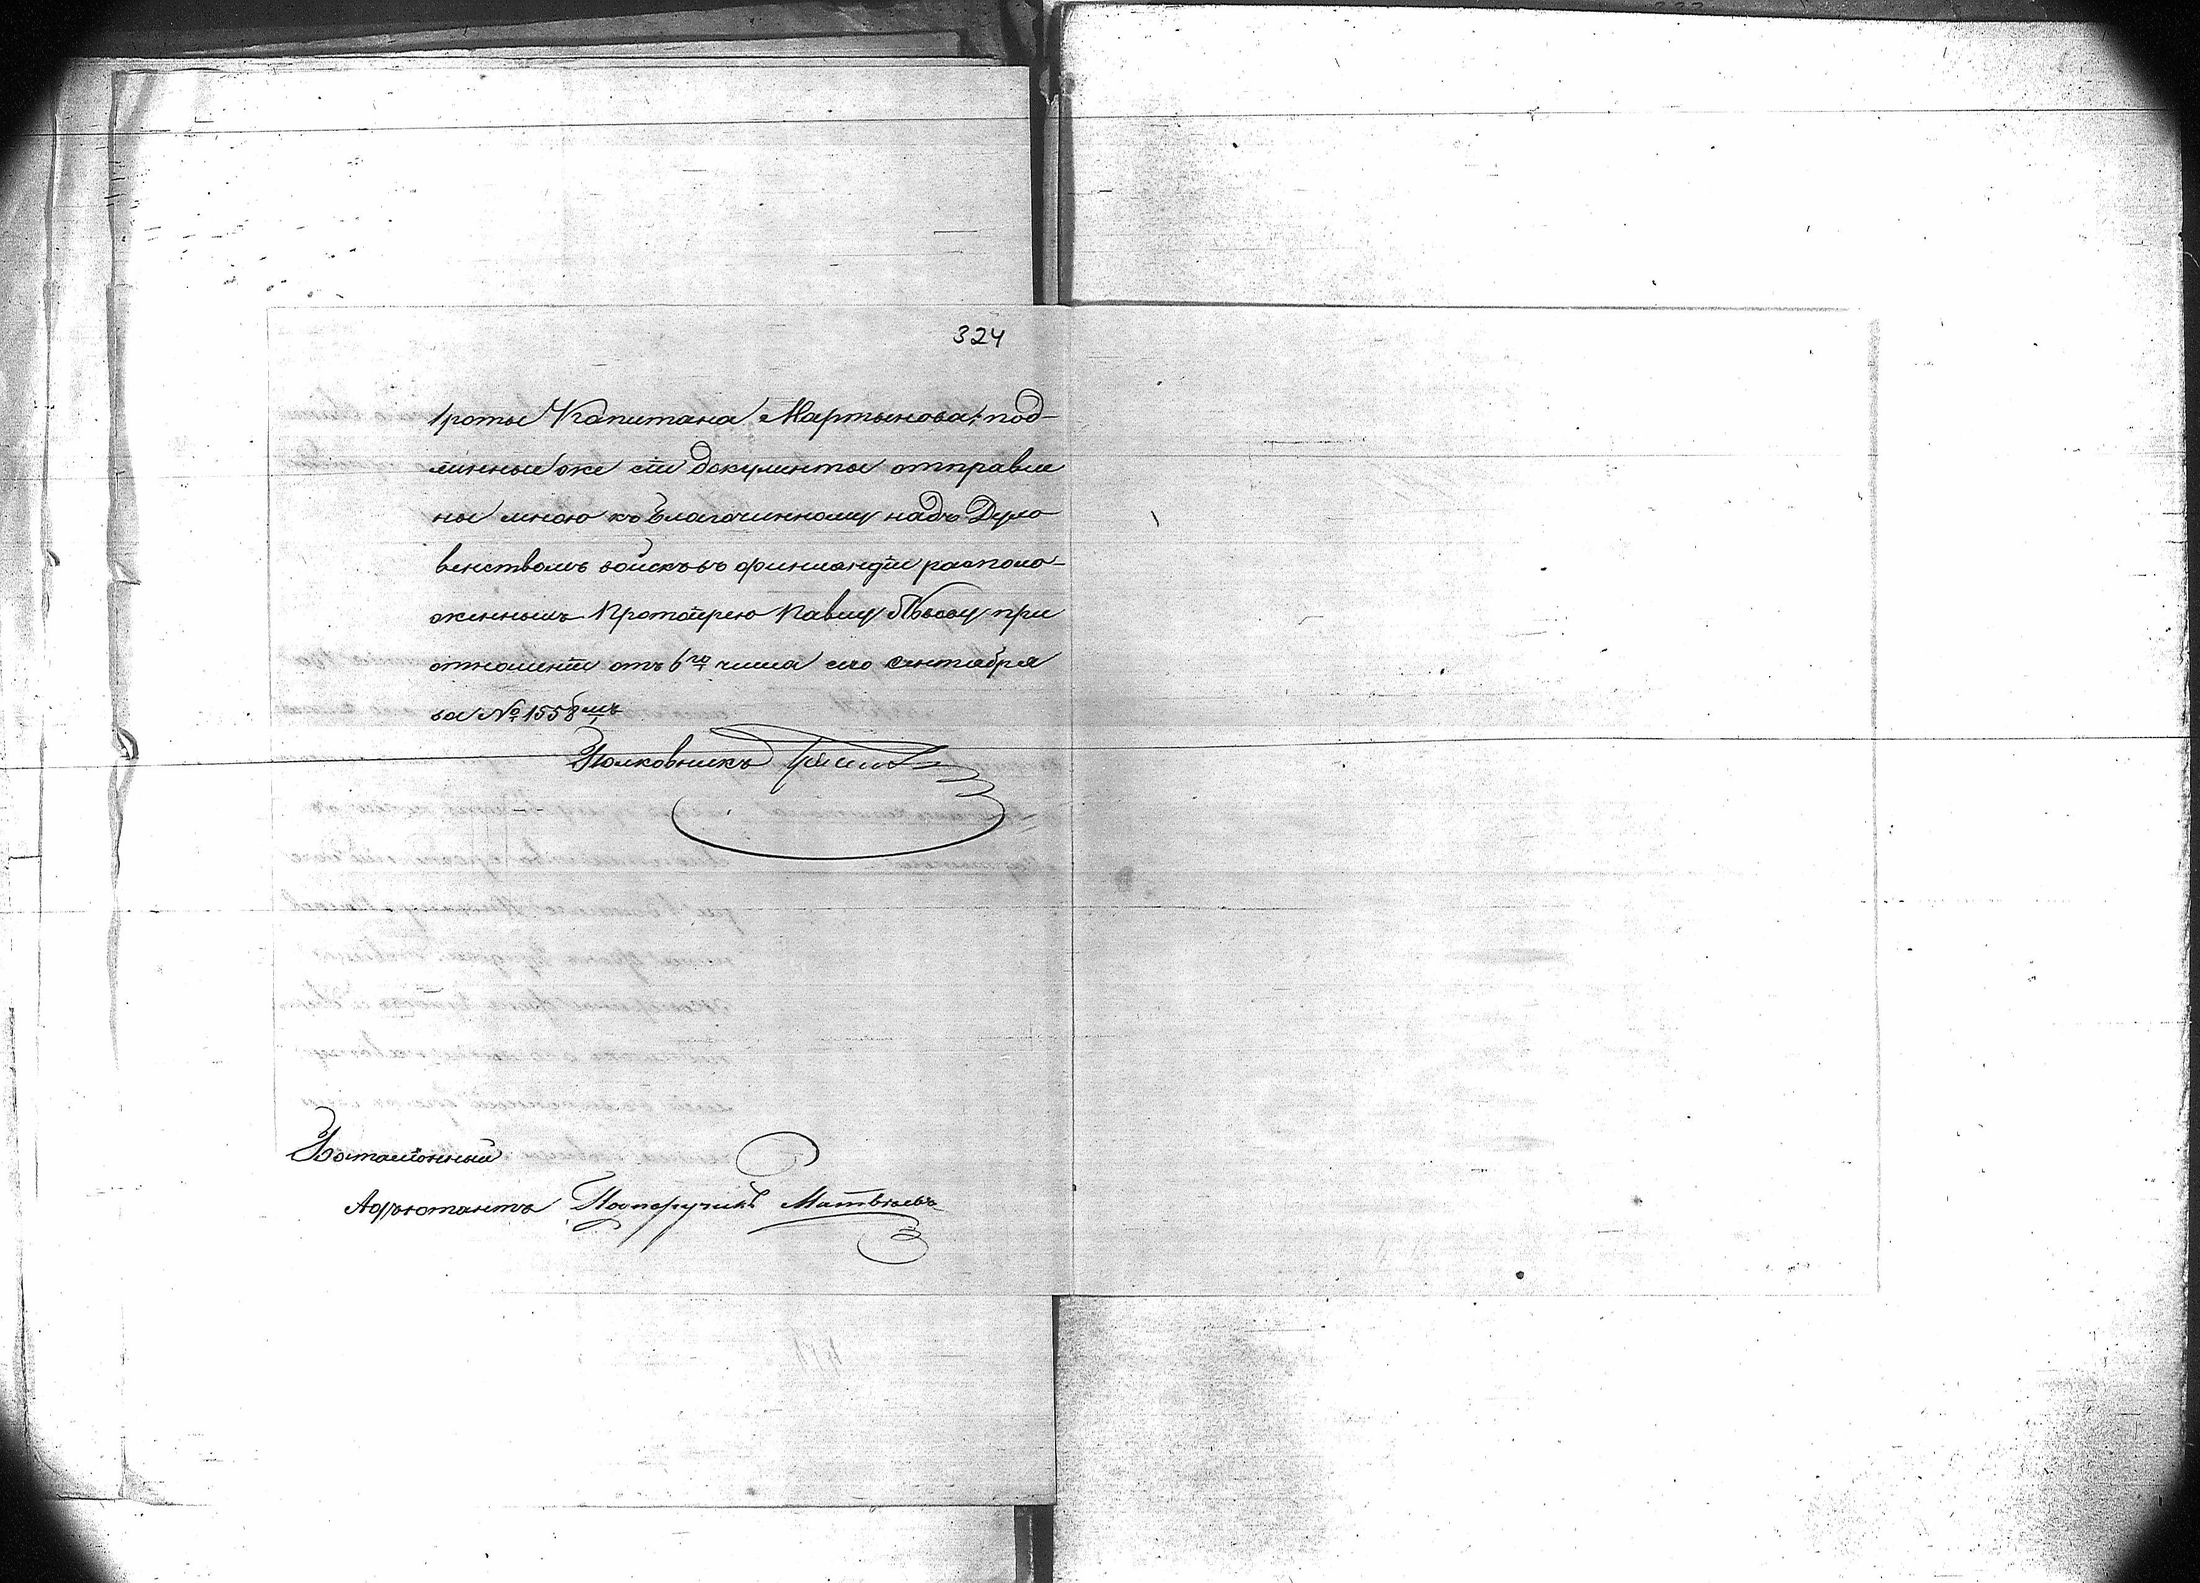 324
роты Капитана Мартынова; под-
линные же сіи документы отправле
ны мною къ Благочинному надъ Духо
венствомъ войскъ въ финляндіи располо-
женнымъ Протоіерею Павлу при
отношеніи отъ 6го числа сего Сентября
за № 1558мъ
Полковникъ
Баталіонный
Адъютантъ Подпоручикъ Матвѣевъ